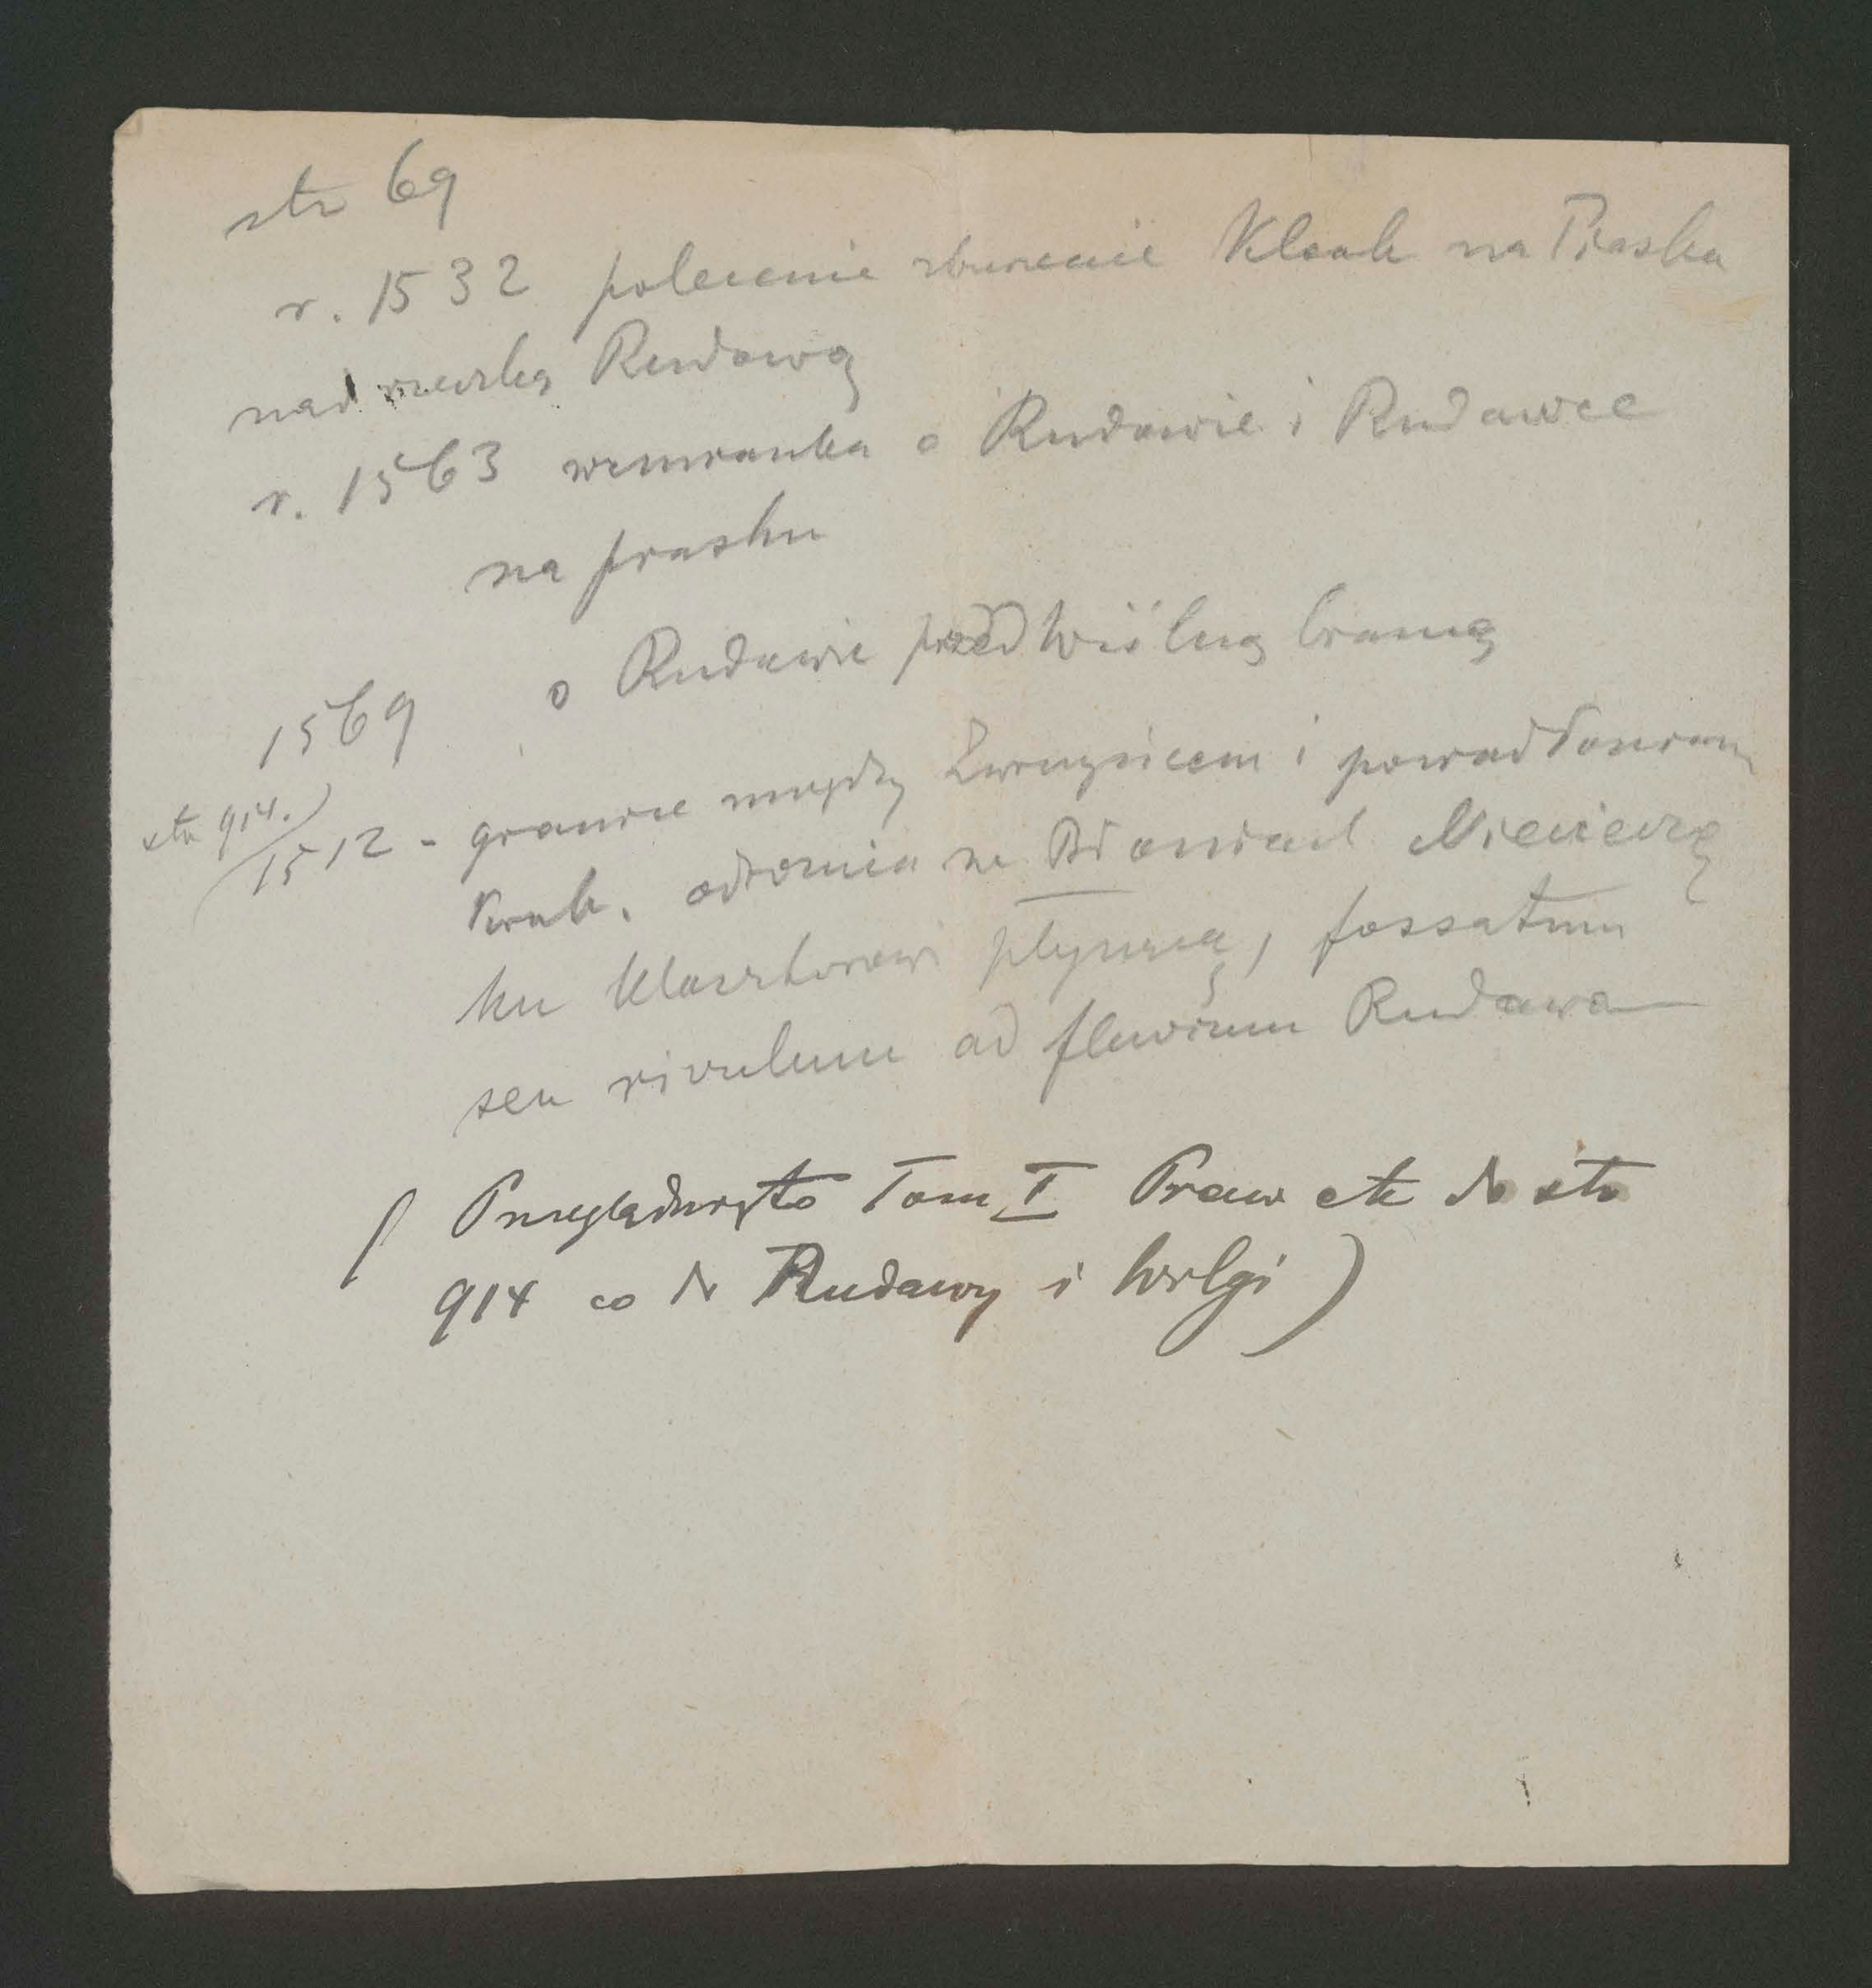 str 69
r. 1532 polecenie zburzenie Kloak na Piasku
nad rzeczką Rudawą
r. 1563 wzmianka o Rudawie i Rudawce
na piasku
1569 o Rudawie przed Wiślną bramą
str 914.) 1512 - granice między Zwierzyńcem i
Krak. odromia na Błoniach Niecieczę
ku klasztorowi płynącą, fossatum
seu rivulum ad fluvium Rudawa
( Przeglądnięto Tom I Praw etc do str
914 co do Rudawy i Wilgi )